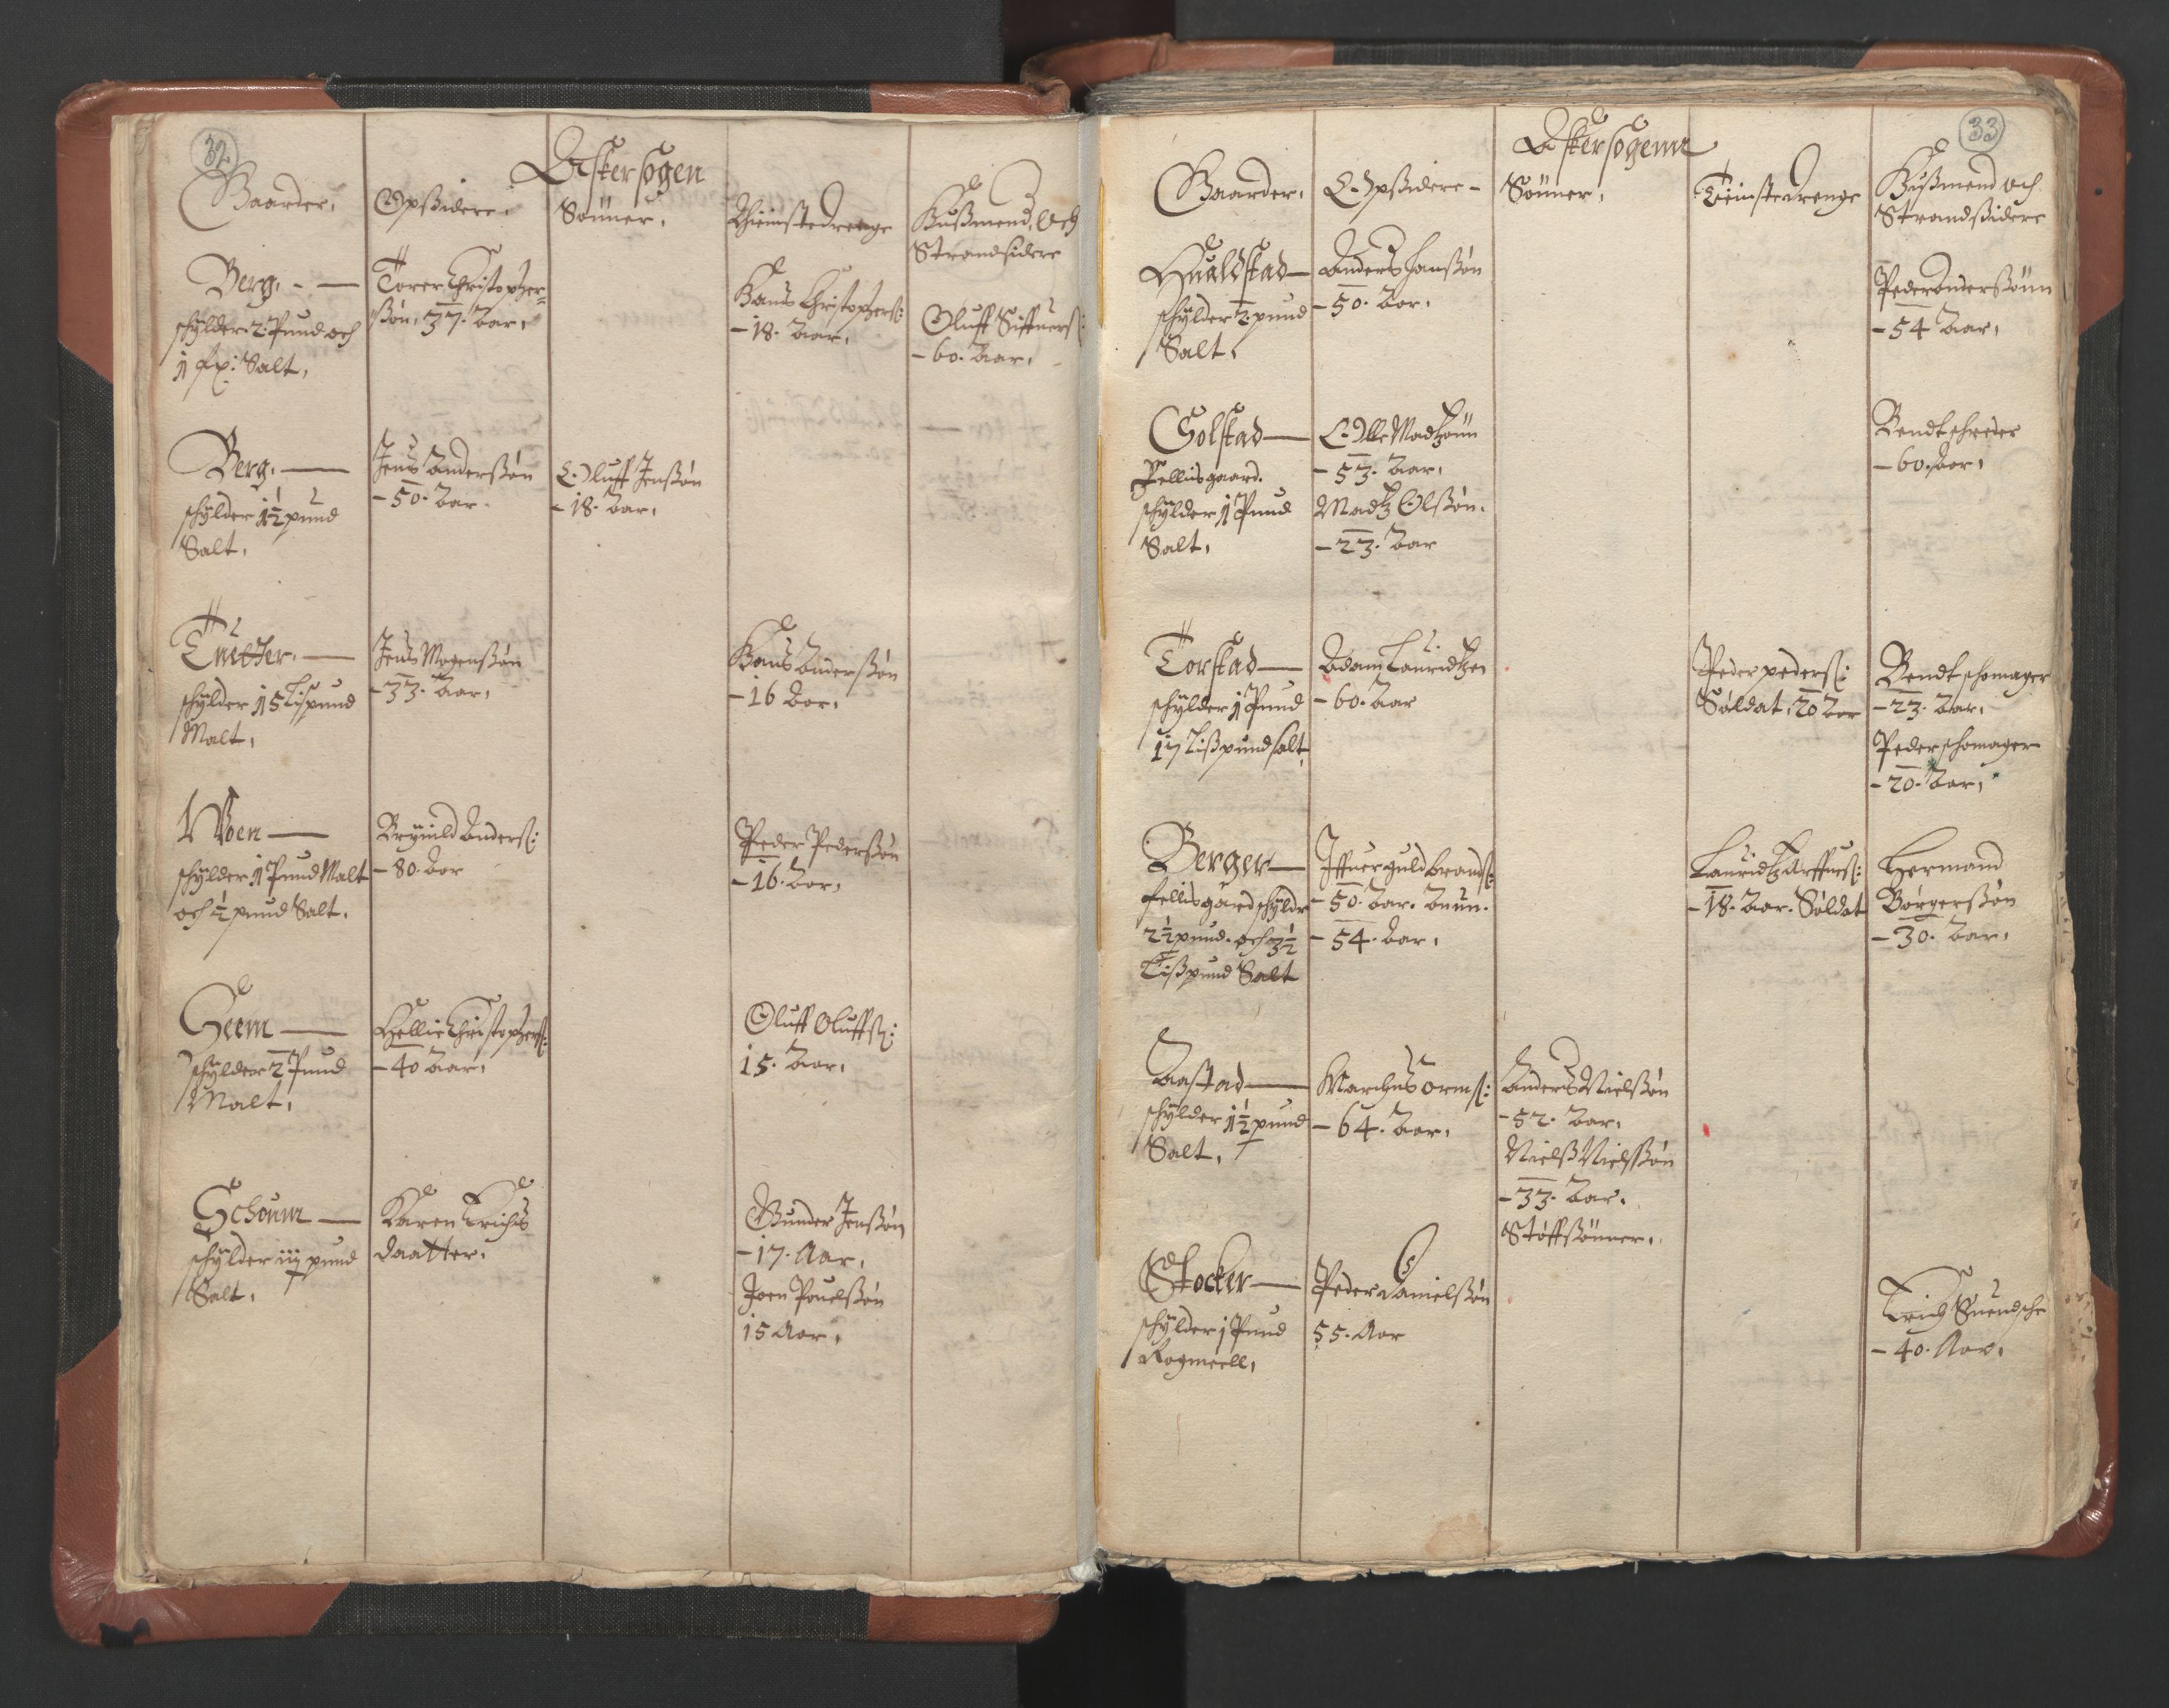 32
Askersogen
Gaarder,
Opsidere,
Sönner,
Thienstedrenge
Husmend, Och
Strandsidere
Berg, - -
schylder 2 Pund och
1 fx: Salt,
Torer Christopher-
ßøn, 37. Aar,
Hans Christophers:
- 18. Aar,
Oluff Siffuers:
- 60. Aar,
Berg, -
schylder 1½ pund
Salt,
Jens Anderßøn
- 50. Aar.
Oluff Jenßøn
- 18. Aar,
Tuetter, -
schylder 15 Lispund
Malt,
Jens Mogenßøn
- 33. Aar,
Hans Anderßøn
- 16 Aar,
Woen -
schylder 1 Pund Malt
och ½ pund Salt.
Brynild Anders:
- 80. Aar
Peder Pederßøn
- 16. Aar,
Seem -
schylder 2 Pund
Malt,
Hellie Christophers:
- 40 Aar,
Oluff Oluffs:
15. Aar,
Schoum -
schylder iij pund
Salt.
Karen Erichs
daatter.
Gunder Jenßøn
- 17. Aar,
Joen Pouelßøn
15 Aar,
33
Askersogenn
Gaarder,
Opsidere -
Sönner,
Tienstedrenge
Husmend och
Strandsidere
Hualdstad -
schylder 2. pund
Salt,
Anders Hanßøn
- 50. Aar.
Peder Anderßönn
- 54 Aar,
Solstad -
Fellisgaard.
schylder 1 Pund
Salt,
Olle Madtzönn
- 53. Aar,
Madtz Olßøn.
- 23. Aar
Bendt schreder
- 60. Aar,
Torstad -
schylder 1 Pund
17 Lißpund salt,
Adam Lauridtzen
- 60. Aar
Peder peders:
Soldat, 20 Aar
Bendt schomager
- 23. Aar,
Peder schomager
- 20. Aar,
Berger -
fellisgaard schylder
2½ pund. och 3½
Lißpund Salt
Iffuer guldbrands:
- 50. Aar.
- 54. Aar,
Lauridtz Arffues:
- 18. Aar. Soldat
Hermand
Börgerßøn
- 30. Aar,
Aastad -
schylder 1½ pund
Salt,
Marchus Orms:
- 64. Aar,
Anders Nielßøn
- 52. Aar.
Nielß Nielßøn
- 33. Aar.
Støffßönner.
Stocker -
schylder j Pund
Rogmeell,
Peder Danielßøn
55. Aar
Erich Suendsche
- 40. Aar,